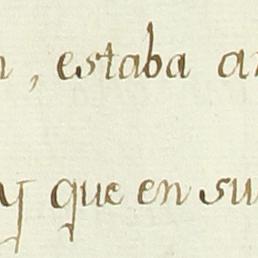 , estaba
y que en su